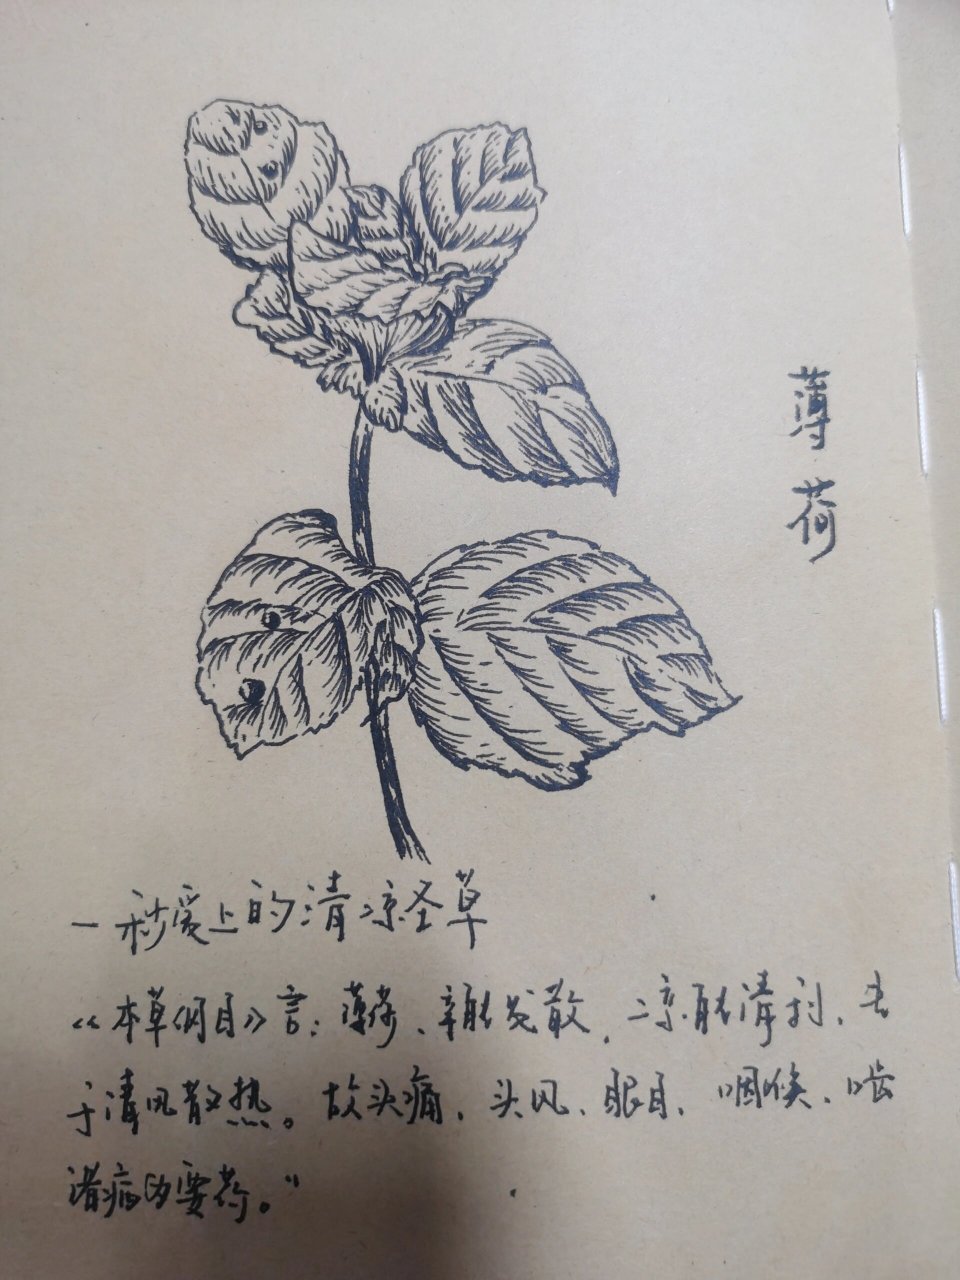 薄荷
一秒爱上的清凉圣草
《本草纲目》言：薄荷、辛能发散，凉能清利，专
于清风散热。故头痛、头风、眼目、咽喉、口齿
诸病为要荷。"